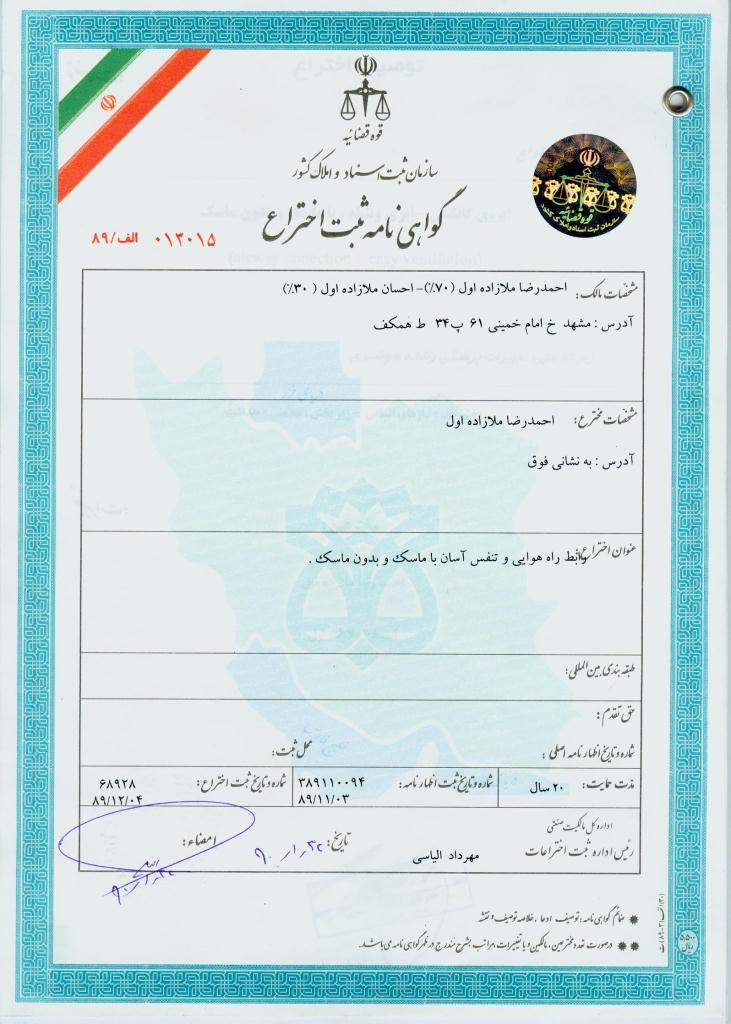 قوه قضائیه
سازمان ثبت اسناد و املاک کشور
گواهی نامه ثبت اختراع
۰۱۳۰۱۵ الف/۸۹
قوه قضائیه
سازمان ثبت اسناد و املاک کشور
مشخصات مالک: احمدرضا ملازاده اول (۷۰٪)- احسان ملازاده اول ( ۳۰٪)
آدرس : مشهد خ امام خمینی ۶۱ پ۳۴ ط همکف
مشخصات مخترع: احمدرضا ملازاده اول
آدرس : به نشانی فوق
عنوان اختراع: رابط راه هوایی و تنفس آسان با ماسک و بدون ماسک .
طبقه بندی بین المللی:
حق تقدم:
شماره و تاریخ اظهارنامه اصلی : محل ثبت:
مدت حمایت: ۲۰ سال
شماره و تاریخ ثبت اظهارنامه: ۳۸۹۱۱۰۰۹۴
۸۹/۱۱/۰۳
شماره و تاریخ ثبت اختراع: ۶۸۹۲۸
۸۹/۱۲/۰۴
اداره کل مالکیت صنعتی
رئیس اداره ثبت اختراعات مهرداد الیاسی تاریخ: امضاء:
ضمائم گواهی نامه: توصیف، ادعا، خلاصه توصیف و نقشه
درصورت تعدد مخترعین، مالکین و یا تغییرات، مراتب بشرح مندرج در ظهر گواهی نامه می باشد.
۵,۵۰۰
ریال